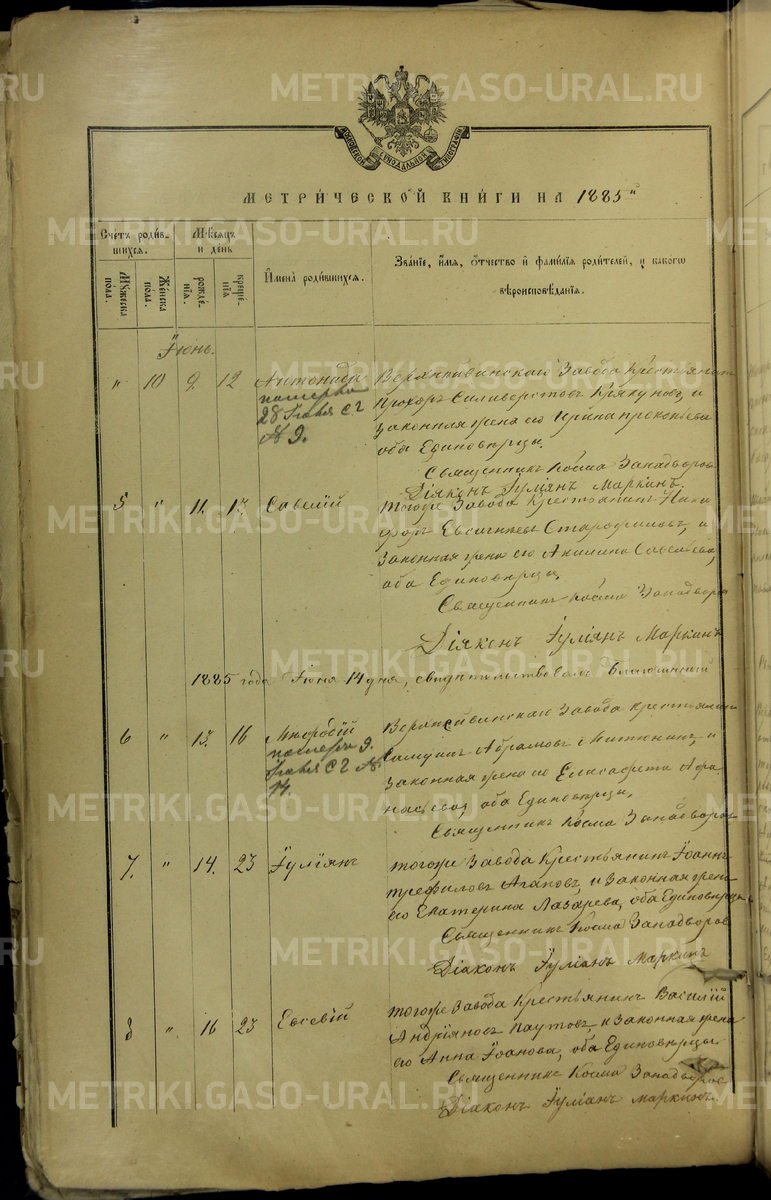 МОСКОВСКОЙ СѴНОДАЛЬНОЙ ТИПОГРАФІИ
МЕТРИ́ЧЕСКОЙ КНИ́ГИ НА 1885"
Счетъ роди́вшихся.
Мѣ́сяцъ и день
Мꙋжеска по́ла.
Же́нска по́ла.
рожде́нїѧ.
креще́нїѧ
И҆мена̀ роди́вшихся.
Зва́нїе, и҆́мѧ, ѻ҆́тчество и҆ фами́лїѧ роди́телей, и҆ како́гѡ
вѣроисповѣ́данїѧ.
Іюнь.
" 10 9. 12 Антонида
померла
28 Іюня с. г.
№ 9.
Верхнейвинскаго Завода Крестьянинъ
Прохоръ Силиверстовъ Крякуновъ, и
законная жена его Ирина Прокопьева
оба Единовѣрцы.
Священникъ Косма Западворовъ
Діяконъ Іуліянъ Маркинъ.
5 " 11. 13. Савелій
тогоже Завода Крестьянинъ Ники
форъ Евсигнѣевъ Стародумовъ, и
Законная жена его Акилина Савельева,
оба Единовѣрцы,
Священникъ Косма Западворовъ
Діяконъ Іуліянъ Маркинъ
1885 года Іюня 14 дня, свидѣтельствовалъ Благочинный
6 " 13. 16 Мкродій
померъ 9.
Іюля с. г. №
14.
Верхнейвинскаго Завода крестьянинъ
Абрамовъ Митюнинъ, и
Законная жена его Елисавета Афа
насьева, оба Единовѣрцы,
Священникъ Косма Западворовъ
7. " 14. 23 Іуліянъ
тогоже Завода Крестьянинъ Іоаннъ
Трефиловъ Агаповъ, и Законная жена
его Екатерина Лазарева, оба Единовѣрцы.
Священникъ Косма Западворовъ
Діаконъ Іуліанъ Маркинъ
8 " 16 23 Евсевій
тогоже Завода Крестьянинъ Василій
Андріяновъ Паутовъ, и Законная жена
его Анна Іоанова, оба Единовѣрцы
Священникъ Косма Западворовъ
Діаконъ Іуліанъ Маркинъ.
METRIKI.GASO-URAL.RU